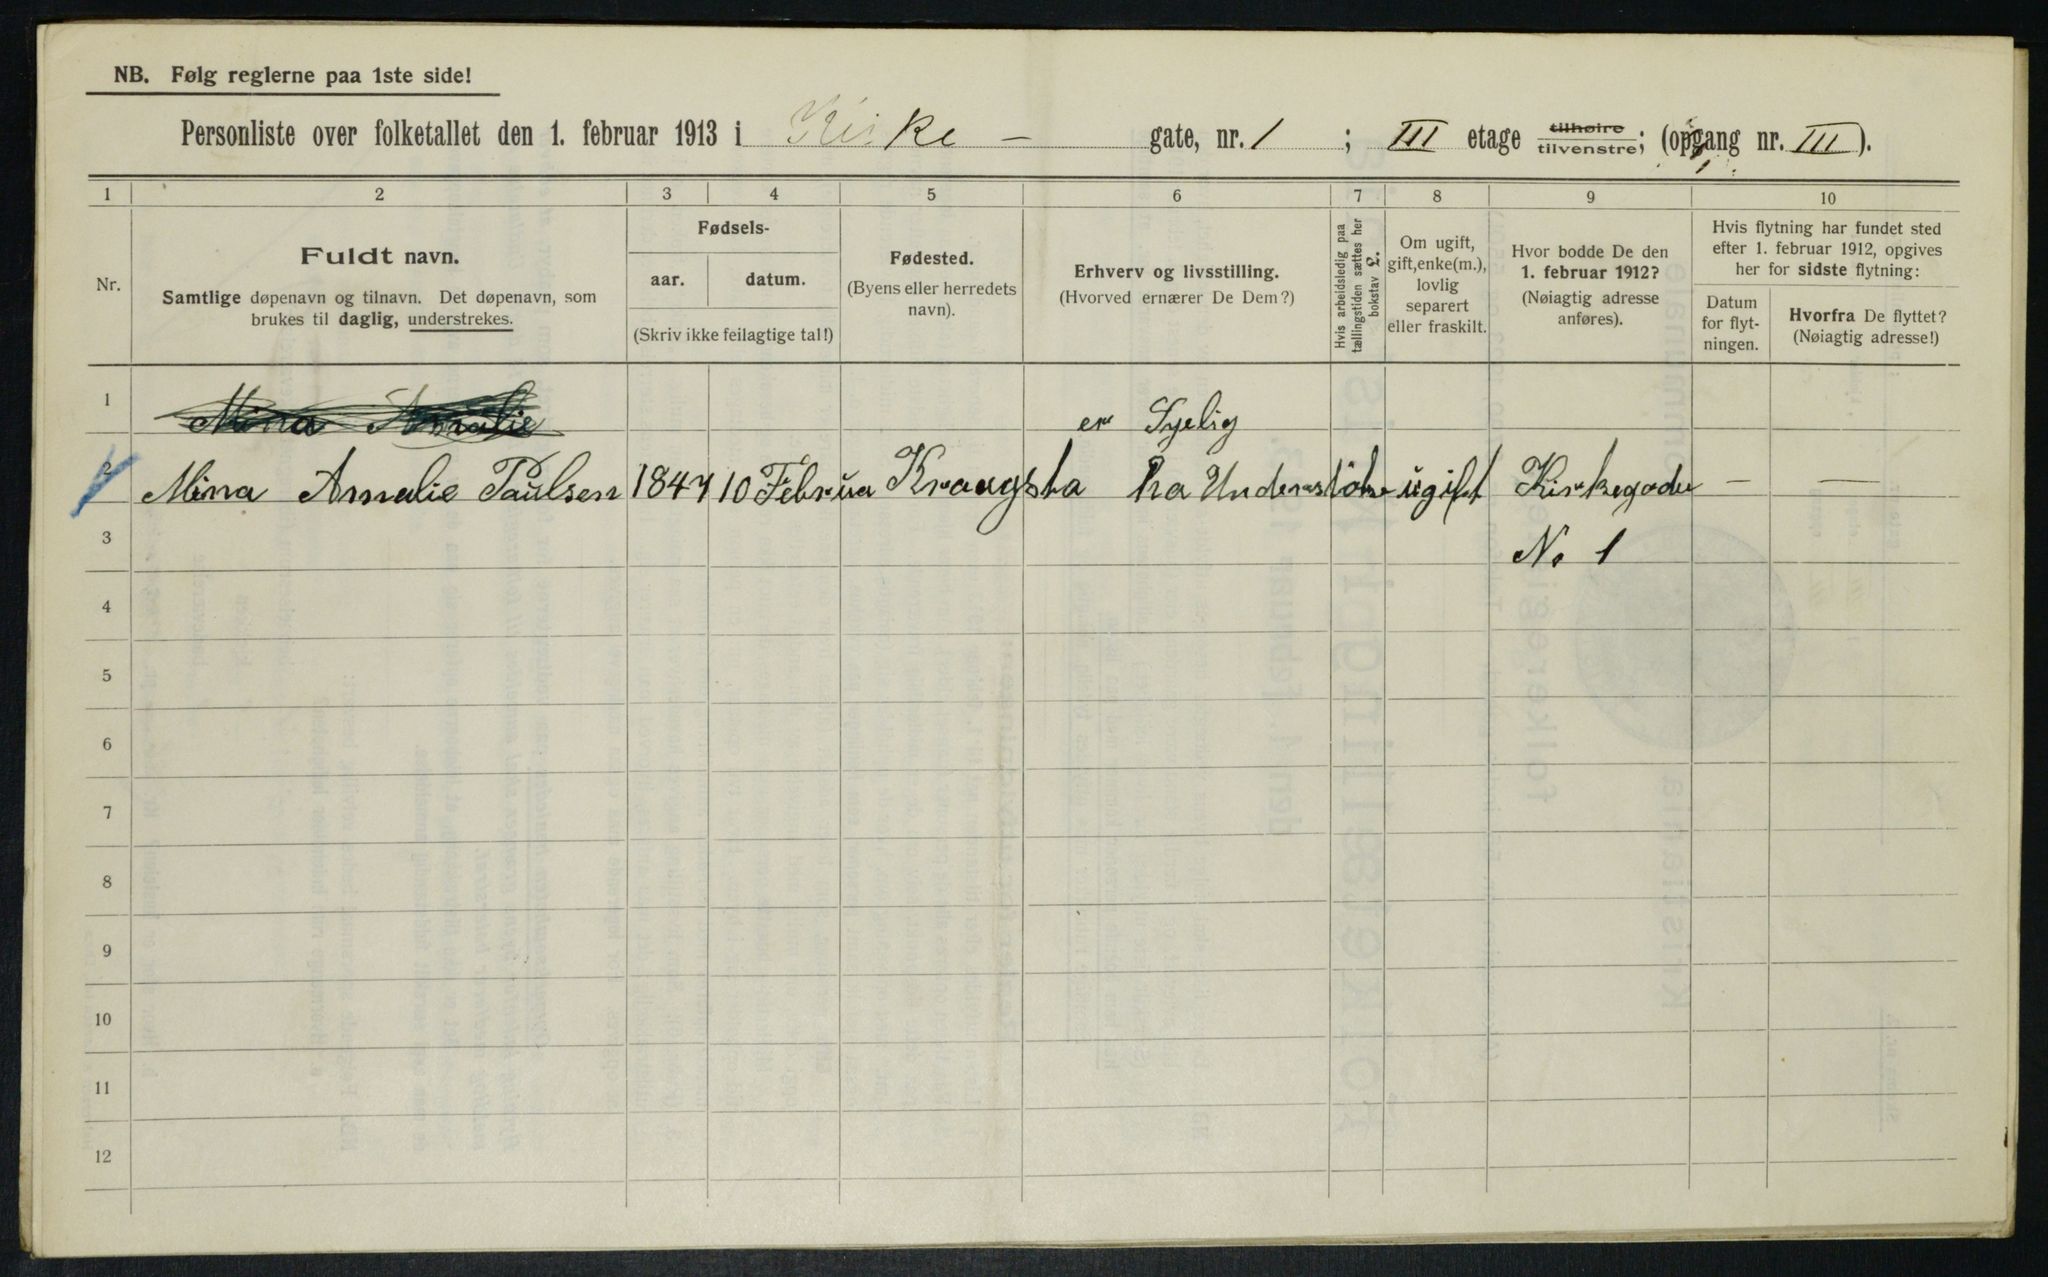 NB. Følg reglerne paa 1ste side!
Personliste over folketallet den 1. februar 1913 i Kirke — gate, nr. 1 ; III etage tilhøire tilvenstre; (opgang nr. III).
1 2 3 4 5 6 7 8 9 10
Nr.
Fuldt navn.
Samtlige døpenavn og tilnavn. Det døpenavn, som
brukes til daglig, understrekes.
Fødsels-
aar. datum.
(Skriv ikke feilagtige tal!)
Fødested.
(Byens eller herredets
navn).
Erhverv og livsstilling.
(Hvorved ernærer De Dem?)
Hvis arbeidsledig paa
tællingstiden sættes her
bokstav L.
Om ugift,
gift, enke(m.),
lovlig
separert
eller fraskilt.
Hvor bodde De den
1. februar 1912?
(Nøiagtig adresse
anføres).
Hvis flytning har fundet sted
efter 1. februar 1912, opgives
her for sidste flytning:
Datum
for flyt-
ningen.
Hvorfra De flyttet?
(Nøiagtig adresse!)
1 Mina Amalie er Syelig
2 Mina Amalie Paulsen 1847 10 Februa Kraugsta ha Understøtse ugift Kirkegade — —
3 No 1
4
5
6
7
8
9
10
11
12